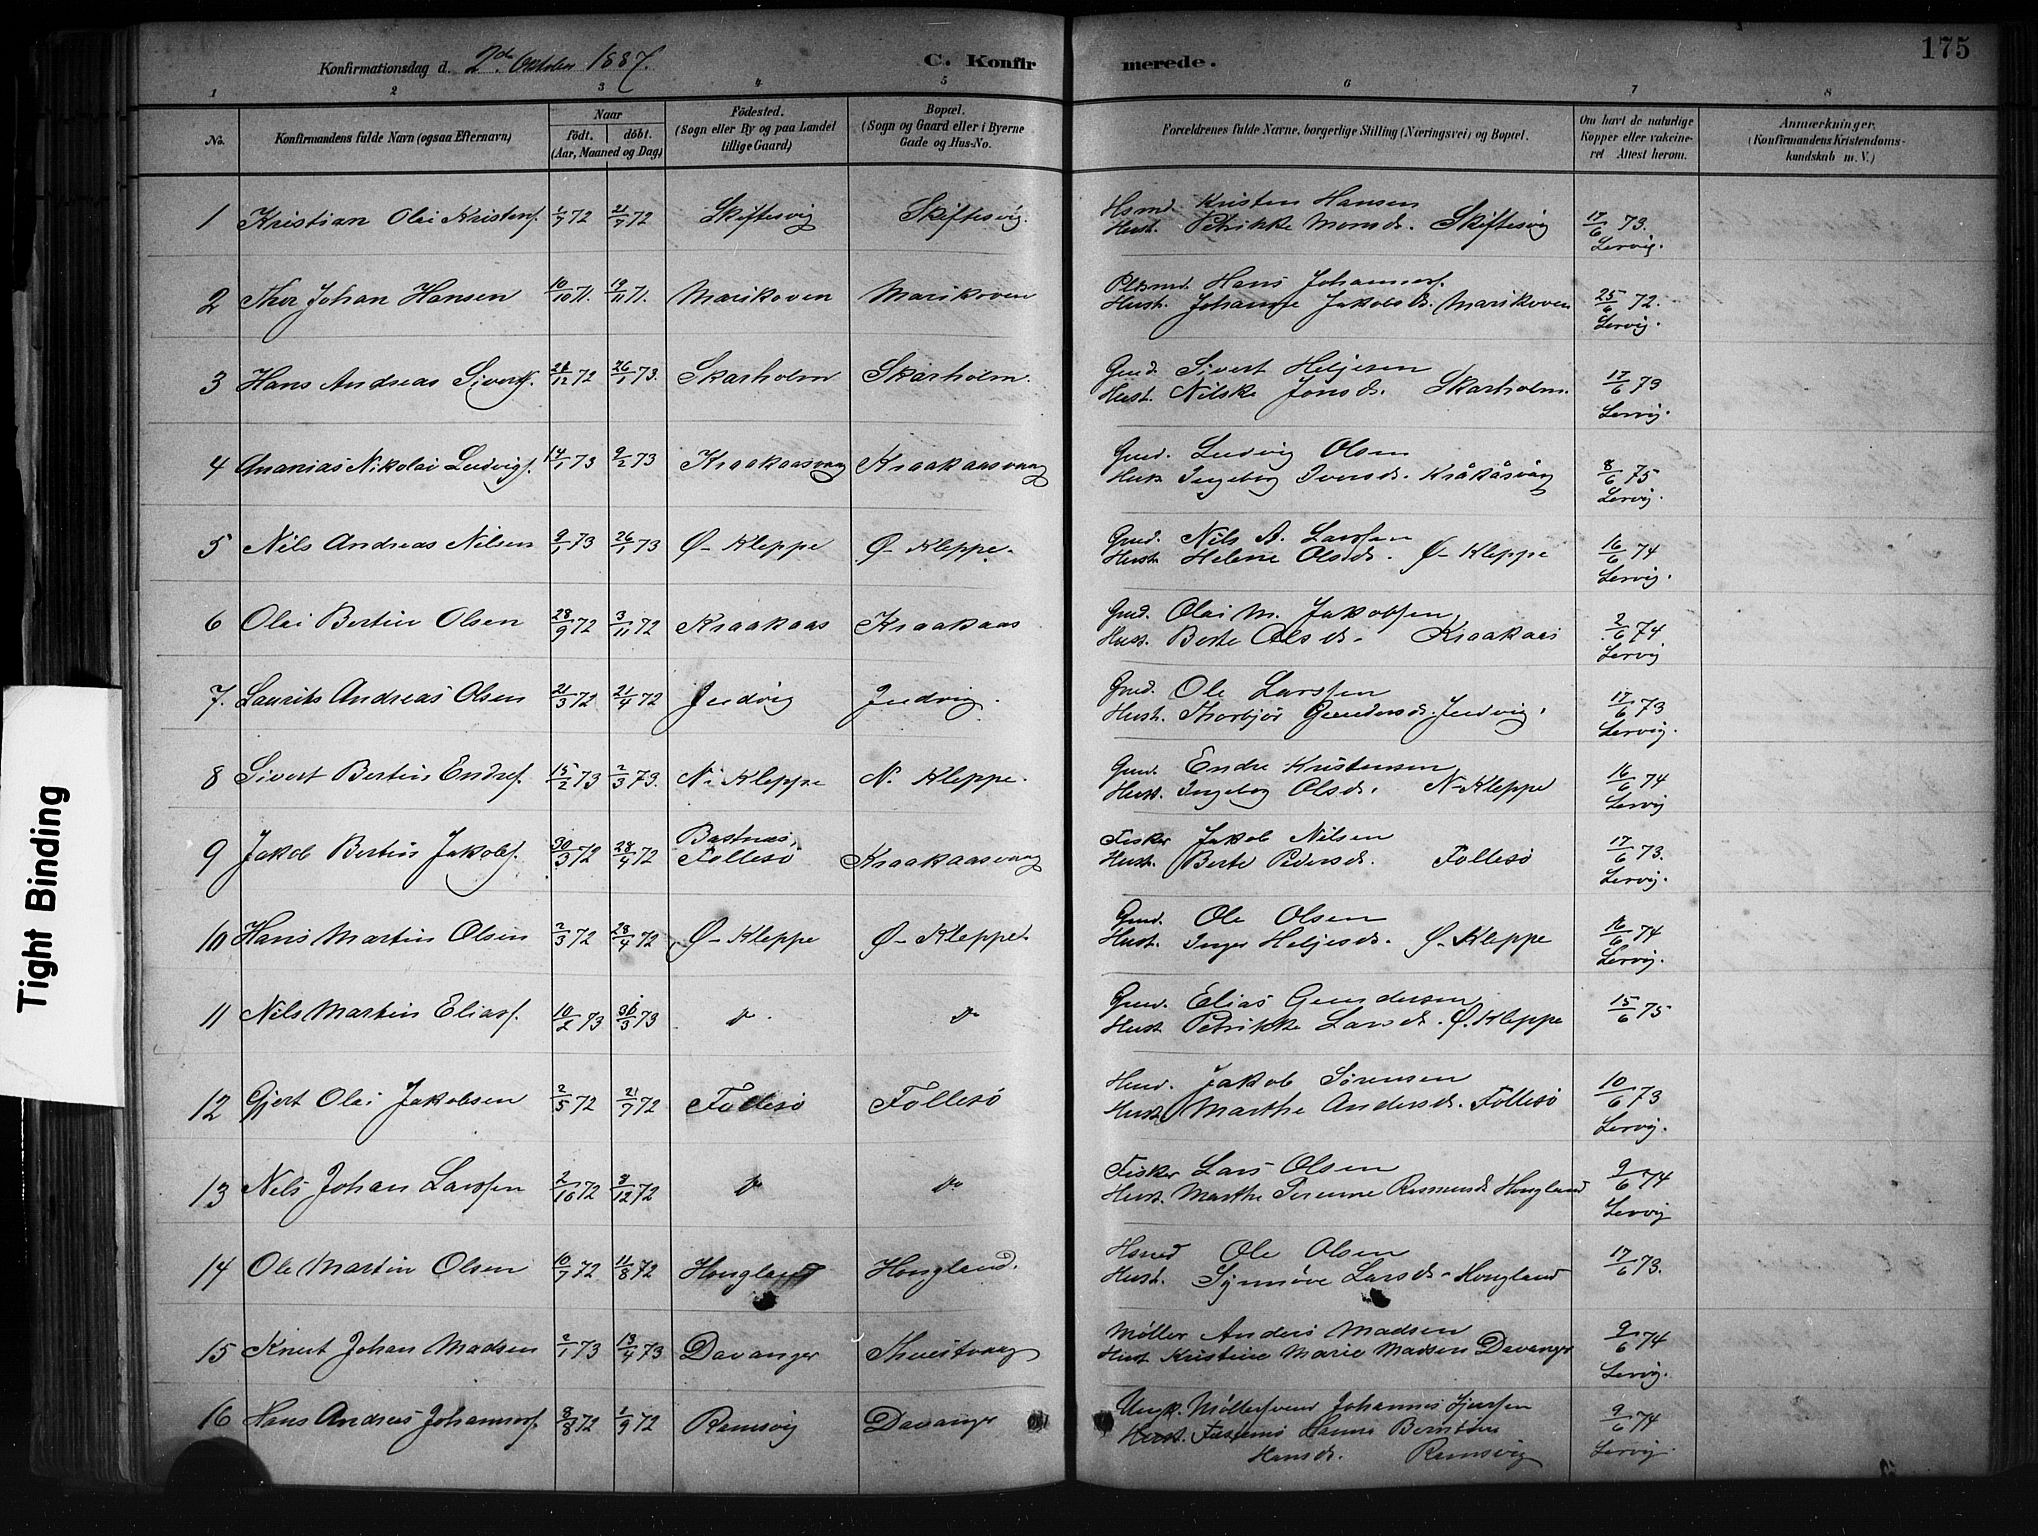 175
Konfirmationsdag d. 2den Oktober 1887.
C. Konfirmerede.
1 2 3 4 5 6 7 8
No.
Konfirmandens fulde Navn (ogsaa Efternavn)
Naar
födt. döbt.
(Aar, Maaned og Dag)
Födested.
(Sogn eller By og paa Landet
tillige Gaard)
Bopæl.
(Sogn og Gaard eller i Byerne
Gade og Hus-No.
Forældrenes fulde Navne, borgerlige Stilling (Næringsvei) og Bopæl.
Om havt de naturlige
Kopper eller vakcine-
ret Attest herom.
Anmærkninger.
(Konfirmandens Kristendoms-
kundskab m. V.)
1 Kristian Olai Kristens. 1/7 72 21/7 72 Skiftesvig Skiftesvig.
Hsmd. Kristen Hansen
Hust. Petrikke Monsd. Skiftesvig
17/6 73.
Lervig.
2 Thor Johan Hansen 10/10 71. 19/11 71. Marikoven Marikoven
Plsmd. Hans Johanness.
Hust. Johanne Jakobsd. Marikoven
25/6 72.
Lervig.
3 Hans Andreas Siverts. 28/12 72 26/1 73. Skarholm Skarholm.
Gmd. Sivert Heljesen
Hust. Nilske Jonsd. Skarholm.
17/6 73
Lervig.
4 Ananias Nikolai Ludvigs. 14/1 73 9/2 73 Kraakaasvaag Kraakaasvaag
Gmd. Ludvig Olsen
Hust. Ingeborg Iversd. Kråkåsvåg
8/6 75
Lervig.
5 Nils Andreas Nilsen 9/1 73 26/1 73 Ø-Kleppe Ø-Kleppe.
Gmd. Nils A. Larssen
Hust. Helene Olsd. Ø-Kleppe
16/6 74
Lervig.
6 Olai Bertin Olsen 28/9 72 3/11 72 Kraakaas Kraakaas
Gmd. Olai M. Jakobsen
Hust. Berte Olsd. Kraakaas
2/6 74
Lervig
7. Laurits Andreas Olsen 21/3 72 21/4 72 Judvig Judvig.
Gmd. Ole Larssen
Hust. Thorbjør Gundersd. Judvig.
17/6 73
Lervig.
8 Sivert Bertin Endres. 15/2 73 2/3 73. N. Kleppe N. Kleppe.
Gmd. Endre Kristensen
Hust. Ingeborg Olsd. N-Kleppe
16/6 74
Lervig
9 Jakob Bertin Jakobs. 30/3 72 28/4 72 Bastnæs, Kraakaasvaag
Follesö
Fisker Jakob Nilsen
Hust. Berte Pedersd. Follesö
17/6 73.
Lervig.
10 Hans Martin Olsen 2/3 72 28/4 72 Ø-Kleppe Ø-Kleppe.
Gmd. Ole Olsen
Hust. Inger Heljesd. Ø-Kleppe
16/6 74
Lervig.
11 Nils Martin Eliass. 10/2 73 /3 73 do do
Gmd. Elias Gundersen
Hust. Petrikke Larsd. Ø. Kleppe
15/6 75
12 Gjert Olai Jakobsen 2/5 72 21/7 72 Follesö Follesö
Hmd. Jakob Sørensen
Hust. Marthe Andersd. Follesö
10/6 73
Lervig.
13 Nils Johan Larssen 2/10 72 8/12 72 do do
Fisker Lars Olsen
Hust. Marthe Serenne Rasmusd. Hougland
9/6 74
Lervig
14 Ole Martin Olsen 10/7 72 11/8 72 Hougland Hougland.
Hsmd Ole Olsen
Hust. Synnöve Larsd. Hougland
17/6 73.
15 Knut Johan Madsen 2/1 73 13/4 73 Davanger Thuestvaag
Möller Anders Madsen
Hust Kristine Marie Madsen Davanger
9/6 74
Lervig.
16 Hans Andreas Johanness. 8/8 72 1/9 72 Ramsvig Davanger
Ungk. Möllersvend Johannes Sjursen
Hanna Berntine
Hansd. Ramsvig
9/6 74
Lervig.
Tight Binding